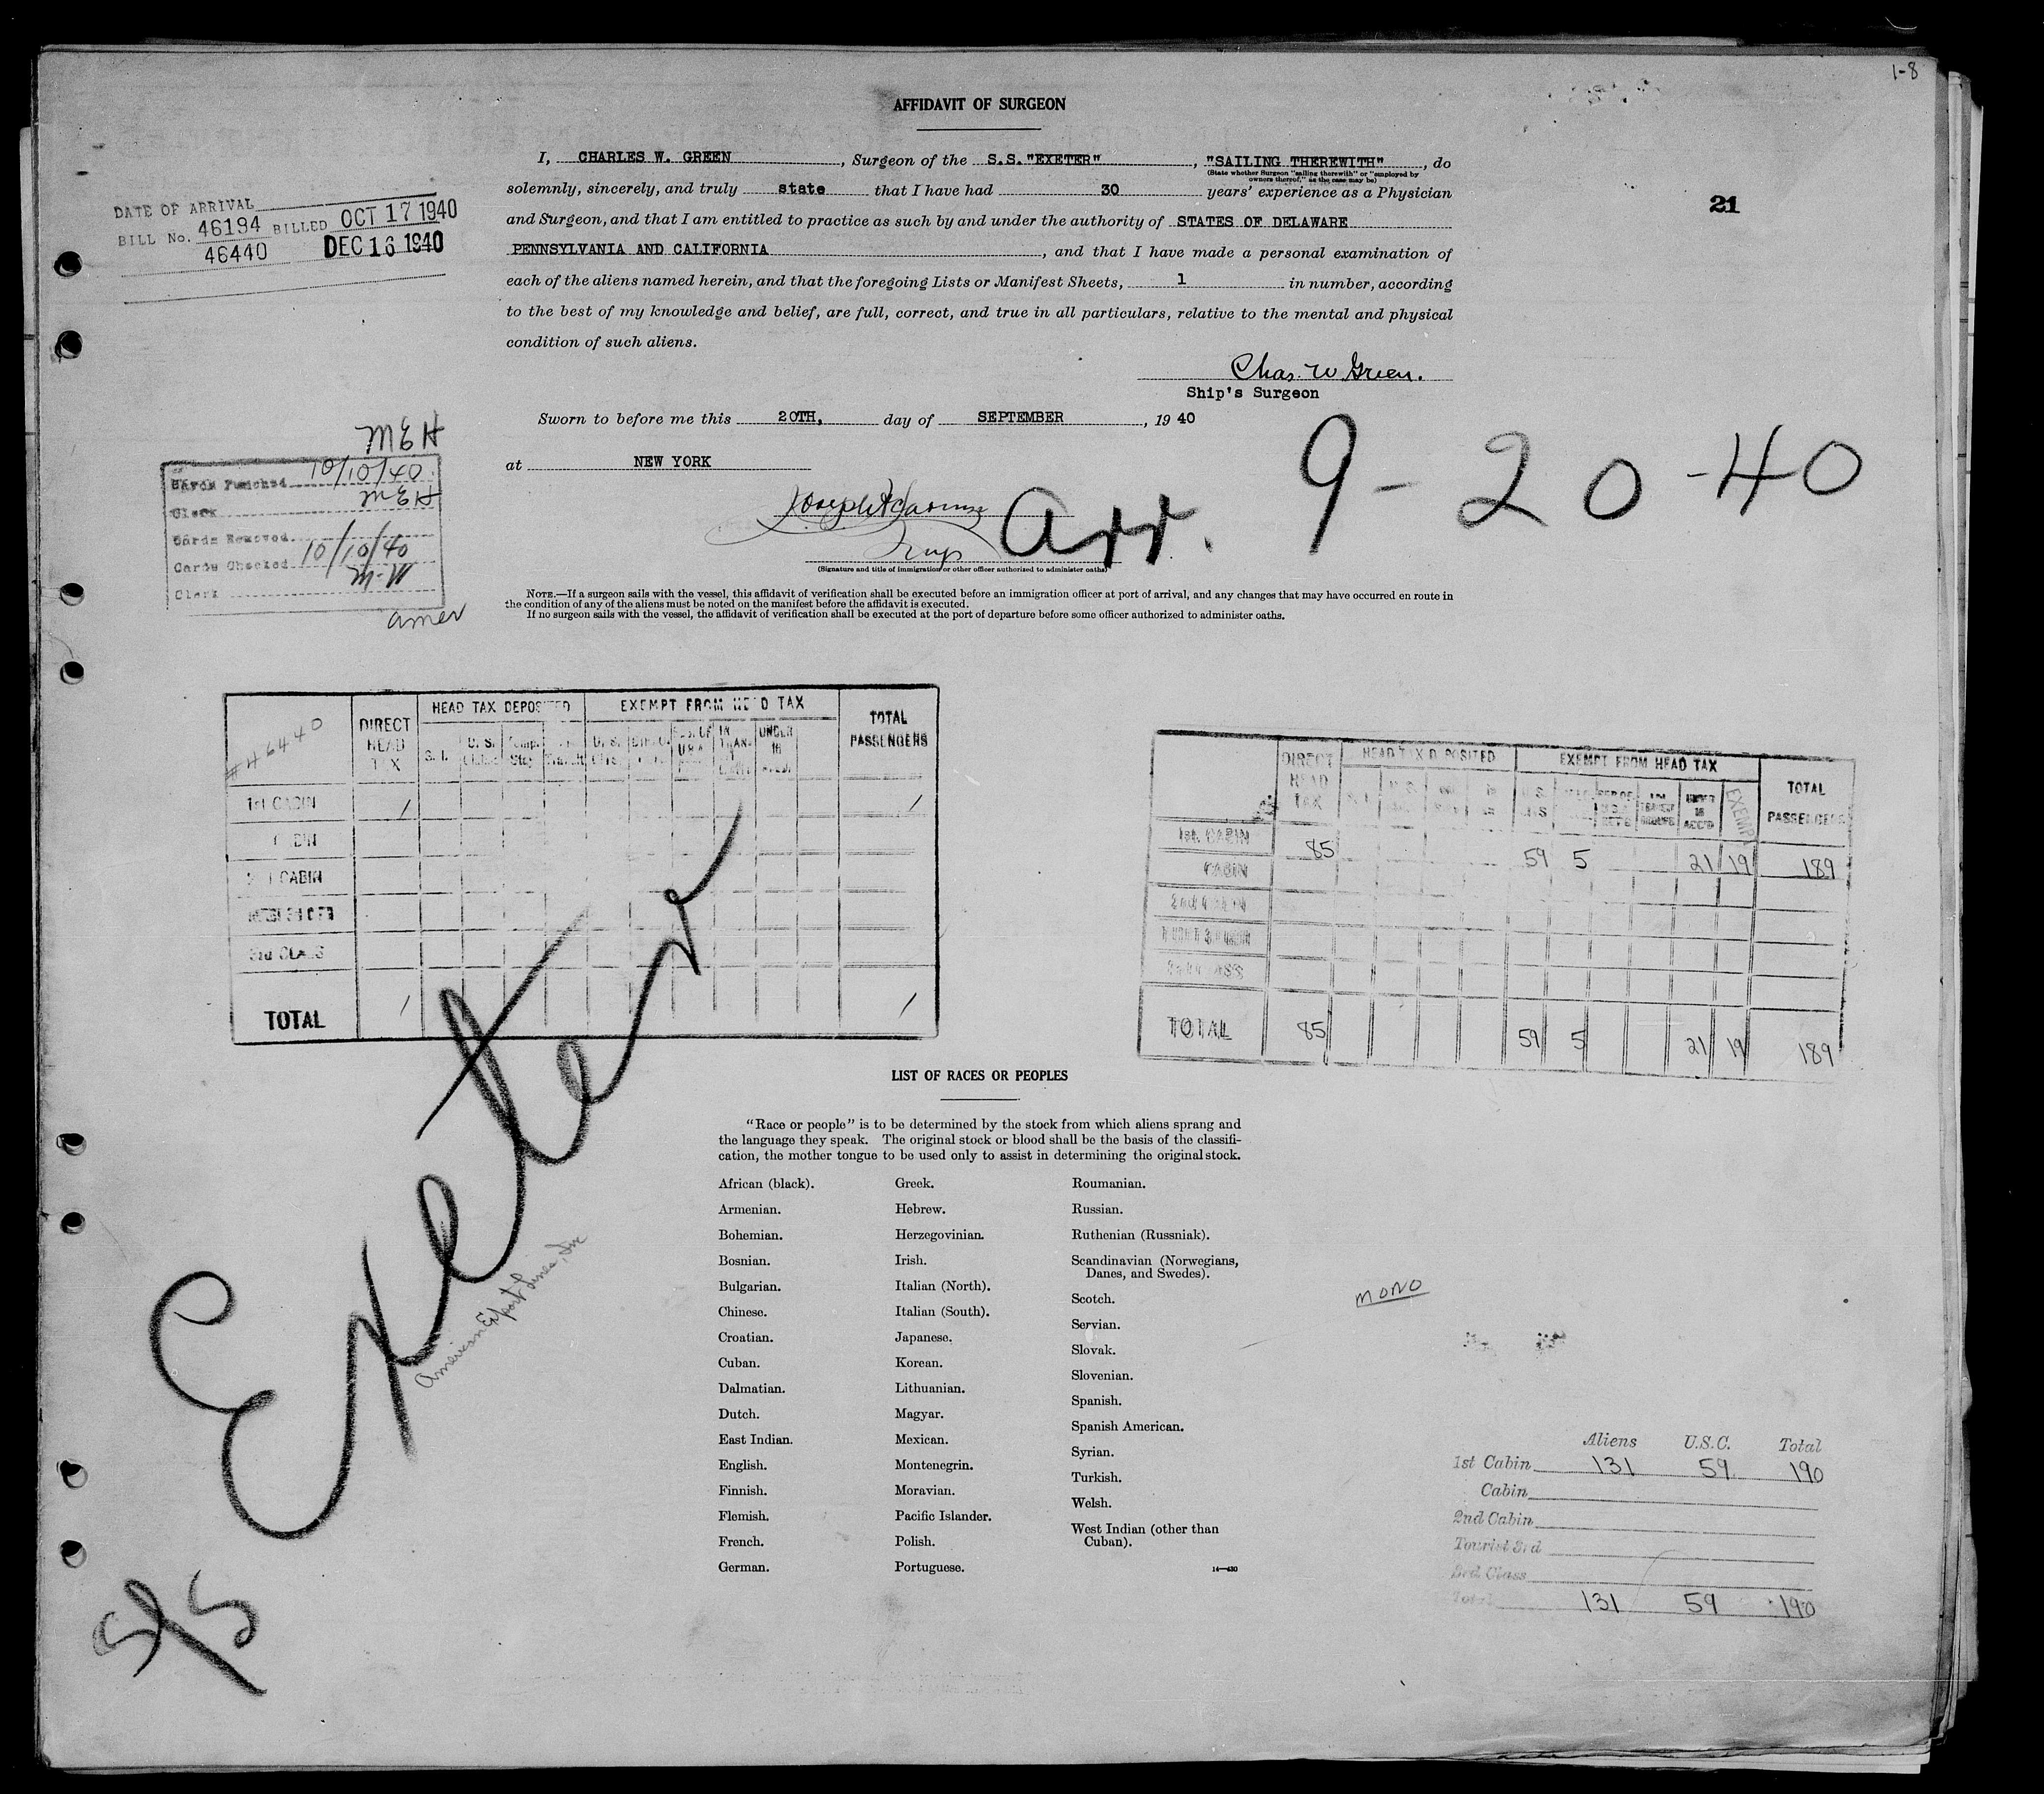 1-8
AFFIDAVIT OF SURGEON
I, CHARLES W. GREEN, Surgeon of the S.S."EXETER", "SAILING THEREWITH", do
(State whether Surgeon "sailing therewith" or "employed by
owners thereof," as the case may be)
solemnly, sincerely, and truly state that I have had 30 years' experience as a Physician
and Surgeon, and that I am entitled to practice as such by and under the authority of STATES OF DELAWARE
PENNSYLVANIA AND CALIFORNIA, and that I have made a personal examination of
each of the aliens named herein, and that the foregoing Lists or Manifest Sheets, 1 in number, according
to the best of my knowledge and belief, are full, correct, and true in all particulars, relative to the mental and physical
condition of such aliens.
Chas. W Green.
Ship's Surgeon
Sworn to before me this 20TH, day of SEPTEMBER, 19 40
at NEW YORK
(Signature and title of immigration or other officer authorized to administer oaths)
21
DATE OF ARRIVAL
BILL No. 46194 BILLED OCT 17 1940
46440 DEC 16 1940
MEH
Cards Punched 10/10/40
Clerk MEH
Cards Removed
Cards Checked 10/10/40
Clerk M-W
amer
Arr. 9-20-40
NOTE.—If a surgeon sails with the vessel, this affidavit of verification shall be executed before an immigration officer at port of arrival, and any changes that may have occurred en route in
the condition of any of the aliens must be noted on the manifest before the affidavit is executed.
If no surgeon sails with the vessel, the affidavit of verification shall be executed at the port of departure before some officer authorized to administer oaths.
#46440
DIRECT HEAD TAX
HEAD TAX DEPOSITED
EXEMPT FROM HEAD TAX
TOTAL PASSENGERS
S.I.
UNDER 16
1st CABIN 1 1
CABIN
2nd CABIN
3rd CLASS
TOTAL 1 1
DIRECT HEAD TAX
HEAD TAX DEPOSITED
EXEMPT FROM HEAD TAX
TOTAL PASSENGERS
UNDER 16 ACC'D
EXEMPT
1st. CABIN 85 59 5 21 19 189
CABIN
2nd CABIN
3rd CLASS
TOTAL 85 59 5 21 19 189
S/S Exeter
American Export Lines, Inc
LIST OF RACES OR PEOPLES
"Race or people" is to be determined by the stock from which aliens sprang and
the language they speak. The original stock or blood shall be the basis of the classifi-
cation, the mother tongue to be used only to assist in determining the original stock.
African (black).
Armenian.
Bohemian.
Bosnian.
Bulgarian.
Chinese.
Croatian.
Cuban.
Dalmatian.
Dutch.
East Indian.
English.
Finnish.
Flemish.
French.
German.
Greek.
Hebrew.
Herzegovinian.
Irish.
Italian (North).
Italian (South).
Japanese.
Korean.
Lithuanian.
Magyar.
Mexican.
Montenegrin.
Moravian.
Pacific Islander.
Polish.
Portuguese.
Roumanian.
Russian.
Ruthenian (Russniak).
Scandinavian (Norwegians,
Danes, and Swedes).
Scotch.
Servian.
Slovak.
Slovenian.
Spanish.
Spanish American.
Syrian.
Turkish.
Welsh.
West Indian (other than
Cuban).
14—430
MONO
Aliens U.S.C. Total
1st Cabin 131 59 190
Cabin
2nd Cabin
Tourist 3rd
3rd Class
Total 131 59 190